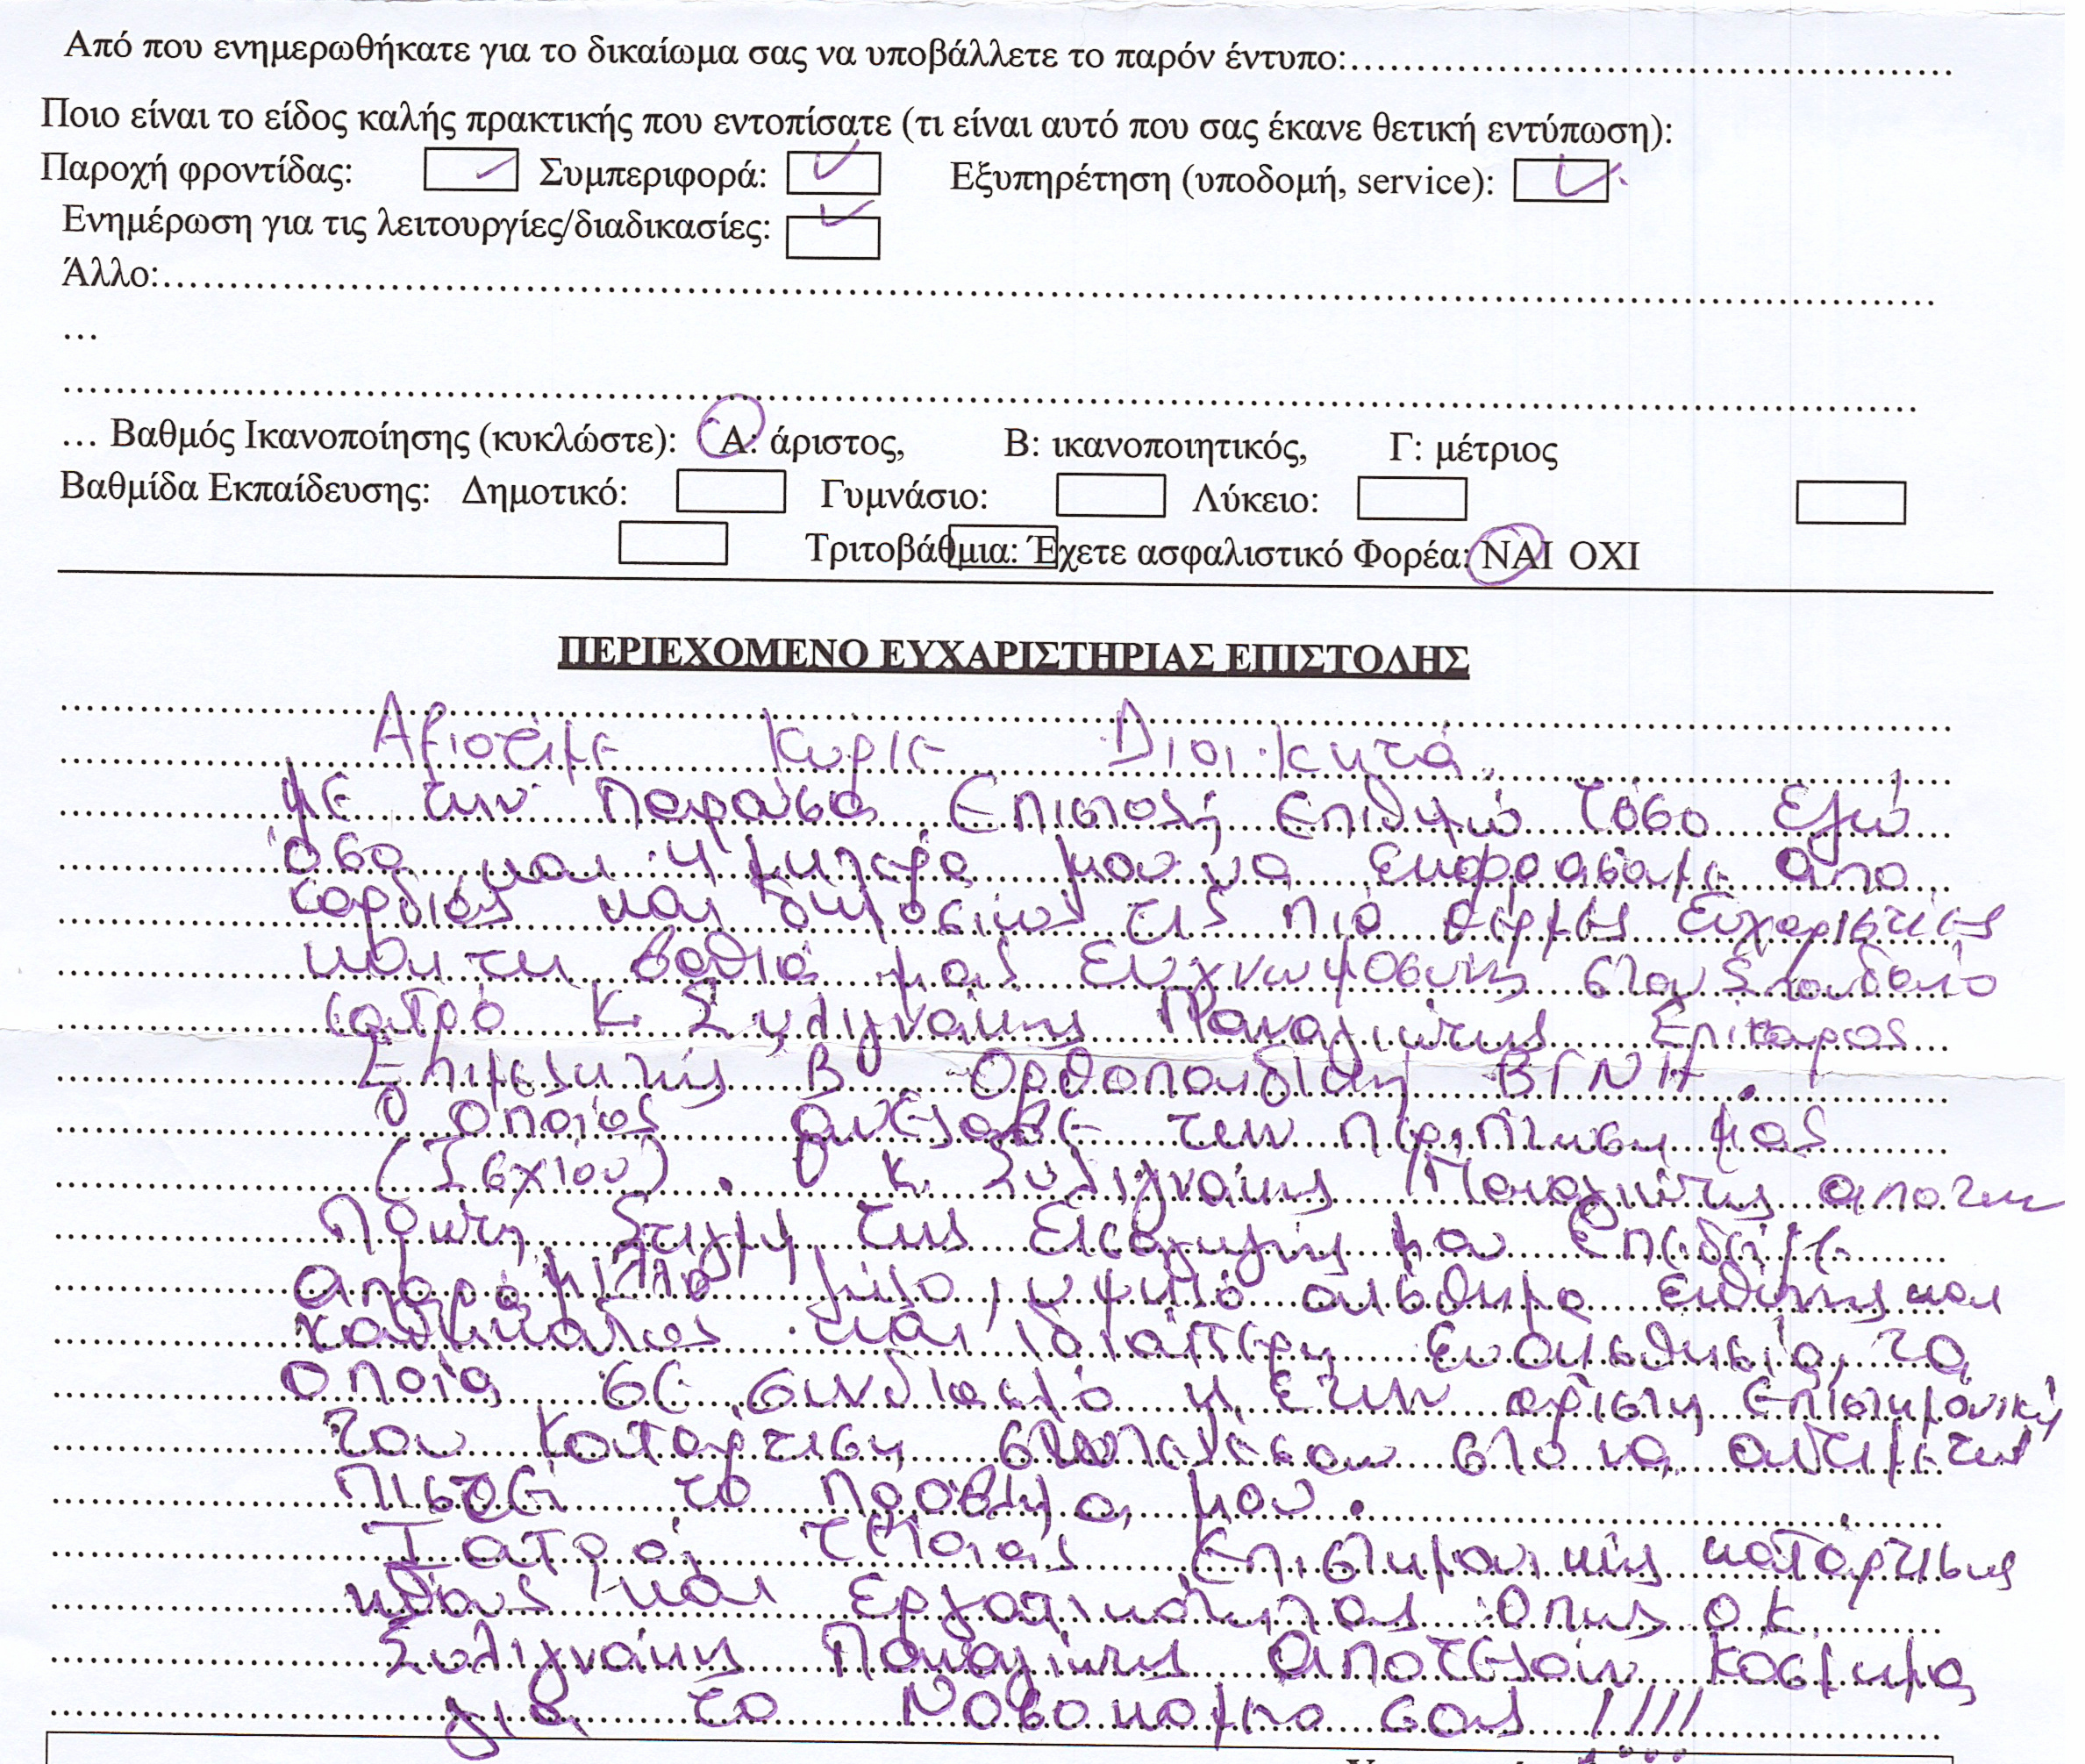 Από που ενημερωθήκατε για το δικαίωμα σας να υποβάλλετε το παρόν έντυπο:
Ποιο είναι το είδος καλής πρακτικής που εντοπίσατε (τι είναι αυτό που σας έκανε θετική εντύπωση):
Παροχή φροντίδας: Συμπεριφορά: Εξυπηρέτηση (υποδομή, service):
Ενημέρωση για τις λειτουργίες/διαδικασίες:
Άλλο:
...
... Βαθμός Ικανοποίησης (κυκλώστε): Α: άριστος, Β: ικανοποιητικός, Γ: μέτριος
Βαθμίδα Εκπαίδευσης: Δημοτικό: Γυμνάσιο: Λύκειο:
Τριτοβάθμια: Έχετε ασφαλιστικό Φορέα: ΝΑΙ ΟΧΙ
ΠΕΡΙΕΧΟΜΕΝΟ ΕΥΧΑΡΙΣΤΗΡΙΑΣ ΕΠΙΣΤΟΛΗΣ
Αξιοτιμε Κυριε Διοικητά
με την παρούσα Επιστολή Επιθυμώ τόσο Εγώ
όσο και η μητέρα μου να εκφρασαμε απο
καρδιάς και δημοσίως τις πιό θερμές Ευχαριστίες
και τη βαθιά μας Ευγνωμοσύνης στον Σπουδαίο
ιατρό Κ Συλιγνάκης Παναγιώτης
Επιμελητής Β Ορθοπαιδική ΒΓΝΗ.
Ο οποίος ανέλαβε την περίπτωση μας
(Ισχίου). Ο κ. Συλιγνάκης Παναγιώτης απο την
πρώτη Στιγμή της Εισαγωγής μου Επέδειξε
απαράμιλλο υψηλό αίσθημα ευθύνης και
καθήκοντος και ιδιαίτερη Ευαισθησία, τα
οποία σε συνδιασμό με την αρίστη Επιστημονική
του κατάρτιση στο να αντιμετω
πισει το προβλημα μου.
Ιατροί τέτοιας Επιστημονικής κατάρτισης
και Εργατικότητας όπως ο κ.
Συλιγνάκης Παναγιώτης Αποτελούν Κόσμημα
για το Νοσοκομειο σας !!!!